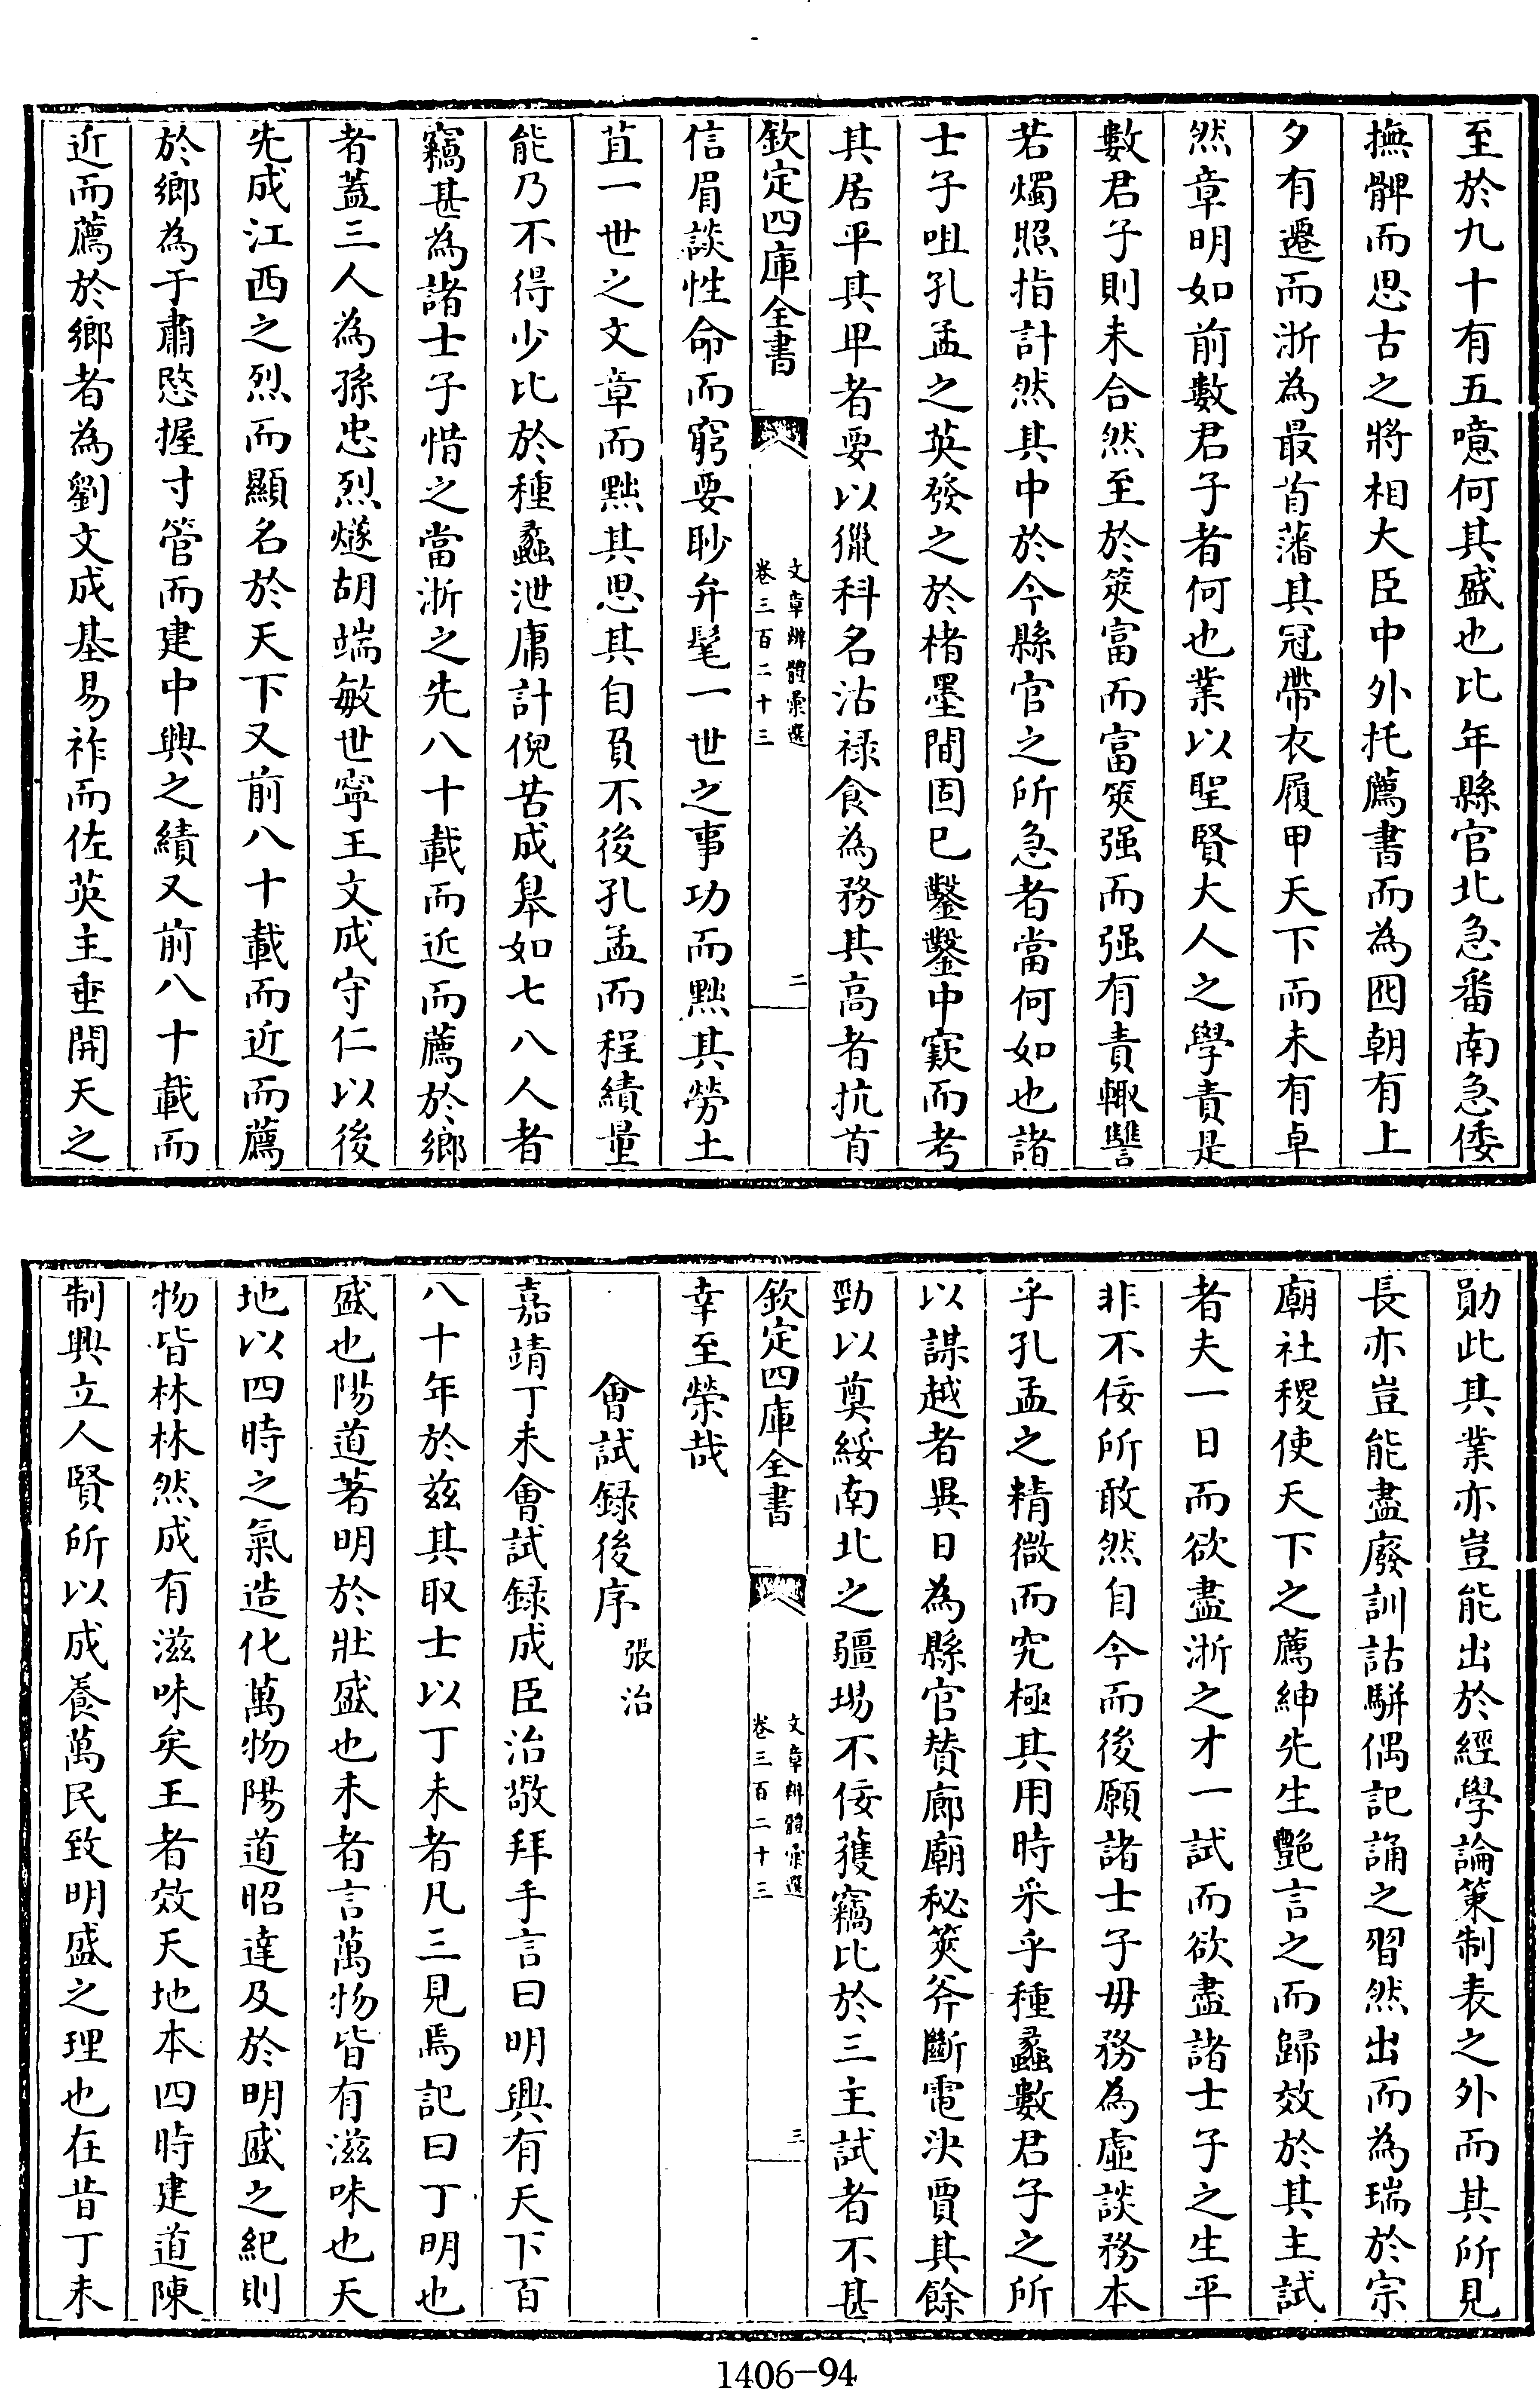 至於九十有五噫何其盛也比年縣官北急番南急倭
撫髀而思古之將相大臣中外托薦書而為囮朝有上
夕有遷而浙為最首藩其冠帶衣履甲天下而未有卓
然章明如前數君子者何也業以聖賢大人之學責是
數君子則未合然至於筴富而富筴强而强有責輙讐
若燭照指計然其中於今縣官之所急者當何如也諸
士子咀孔孟之英發之於楮墨間固已鑿鑿中窾而考
其居平其卑者要以獵科名沽禄食為務其高者抗首
欽定四庫全書
文章辨體彙選
卷三百二十三
二
信眉談性命而窮要眇弁髦一世之事功而黜其勞土
苴一世之文章而黜其思其自負不後孔孟而程績量
能乃不得少比於種蠡泄庸計倪苦成皋如七八人者
竊甚為諸士子惜之當浙之先八十載而近而薦於鄉
者蓋三人為孫忠烈燧胡端敏世寧王文成守仁以後
先成江西之烈而顯名於天下又前八十載而近而薦
於鄉為于肅愍握寸管而建中興之績又前八十載而
近而薦於鄉者為劉文成基易祚而佐英主垂開天之
勛此其業亦豈能出於經學論策制表之外而其所見
長亦豈能盡廢訓詁駢偶記誦之習然出而為瑞於宗
廟社稷使天下之薦紳先生艷言之而歸效於其主試
者夫一日而欲盡浙之才一試而欲盡諸士子之生平
非不佞所敢然自今而後願諸士子毋務為虛談務本
乎孔孟之精微而究極其用時采乎種蠡數君子之所
以謀越者異日為縣官贊廊廟秘筴斧斷電決賈其餘
勁以奠綏南北之疆埸不佞獲竊比於三主試者不甚
欽定四庫全書
文章辨體彙選
卷三百二十三
三
幸至榮哉
會試録後序 張治
嘉靖丁未會試録成臣治敬拜手言曰明興有天下百
八十年於兹其取士以丁未者凡三見焉記曰丁明也
盛也陽道著明於壯盛也未者言萬物皆有滋味也天
地以四時之氣造化萬物陽道昭達及於明盛之紀則
物皆林林然成有滋味矣王者效天地本四時建道陳
制興立人賢所以成養萬民致明盛之理也在昔丁未
1406-94